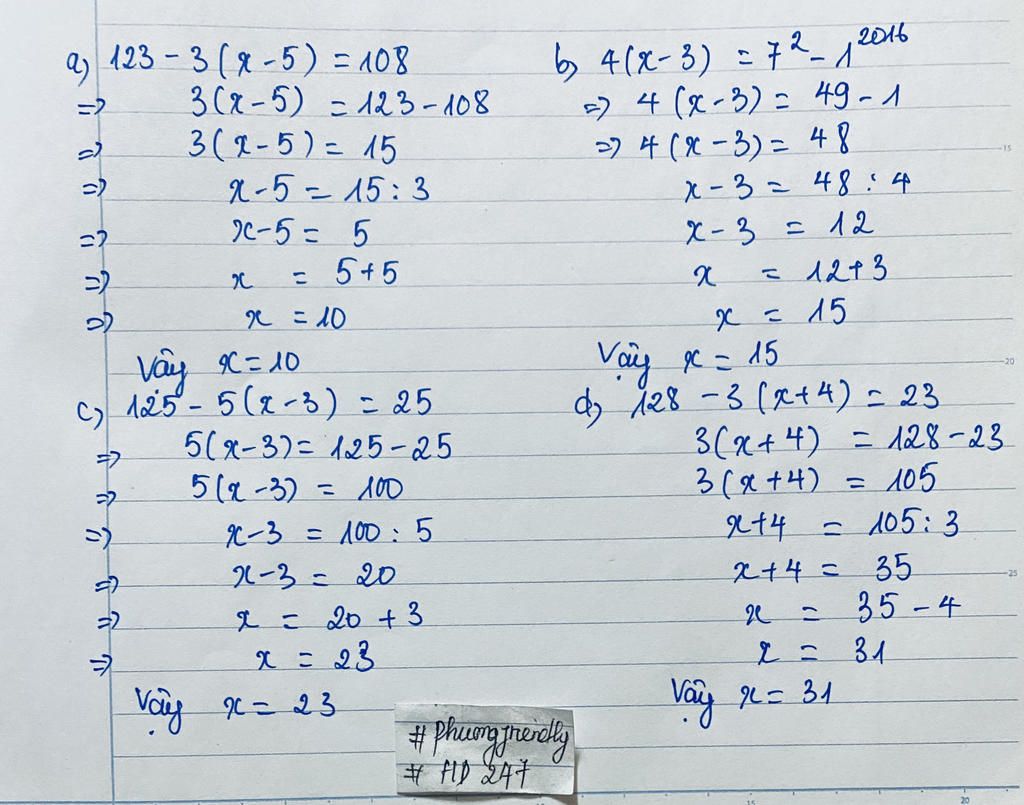 a, 123 - 3(x - 5) = 108
=> 3(x - 5) = 123 - 108
=> 3(x - 5) = 15
=> x - 5 = 15 : 3
=> x - 5 = 5
=> x = 5 + 5
=> x = 10
Vậy x = 10
b, 4(x - 3) = 7² - 1²⁰¹⁶
=> 4(x - 3) = 49 - 1
=> 4(x - 3) = 48
x - 3 = 48 : 4
x - 3 = 12
x = 12 + 3
x = 15
Vậy x = 15
c, 125 - 5(x - 3) = 25
=> 5(x - 3) = 125 - 25
=> 5(x - 3) = 100
=> x - 3 = 100 : 5
=> x - 3 = 20
=> x = 20 + 3
=> x = 23
Vậy x = 23
d, 128 - 3(x + 4) = 23
3(x + 4) = 128 - 23
3(x + 4) = 105
x + 4 = 105 : 3
x + 4 = 35
x = 35 - 4
x = 31
Vậy x = 31
# 247
15
20
25
15
20